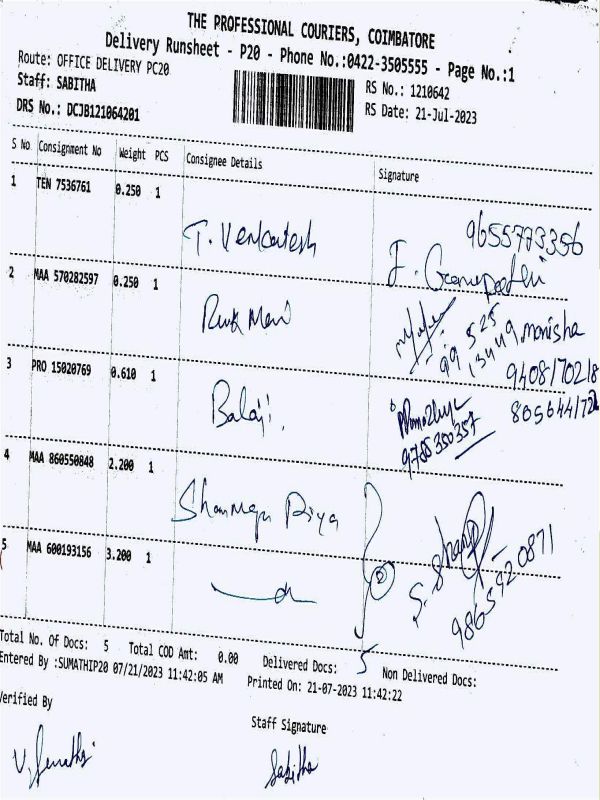 THE PROFESSIONAL COURIERS, COIMBATORE
Delivery Runsheet - P20 - Phone No.:0422-3505555 - Page No.:1
Route: OFFICE DELIVERY PC20
Staff: SABITHA RS No.: 1210642
DRS No.: DCJB121064201 RS Date: 21-Jul-2023
S No Consignment No Weight PCS Consignee Details Signature
1 TEN 7536761 0.250 1
T. Venkatesh 9655773356
2 MAA 570282597 0.250 1
99525
13449 monisha
3 PRO 15020769 0.610 1
Balaji. 9785350357
4 MAA 860550848 2.200 1
Priya
5 MAA 600193156 3.200 1
9865920871
Total No. Of Docs: 5 Total COD Amt: 0.00 Delivered Docs: 5 Non Delivered Docs:
Entered By :SUMATHIP20 07/21/2023 11:42:05 AM Printed On: 21-07-2023 11:42:22
Verified By Staff Signature
Sabitha